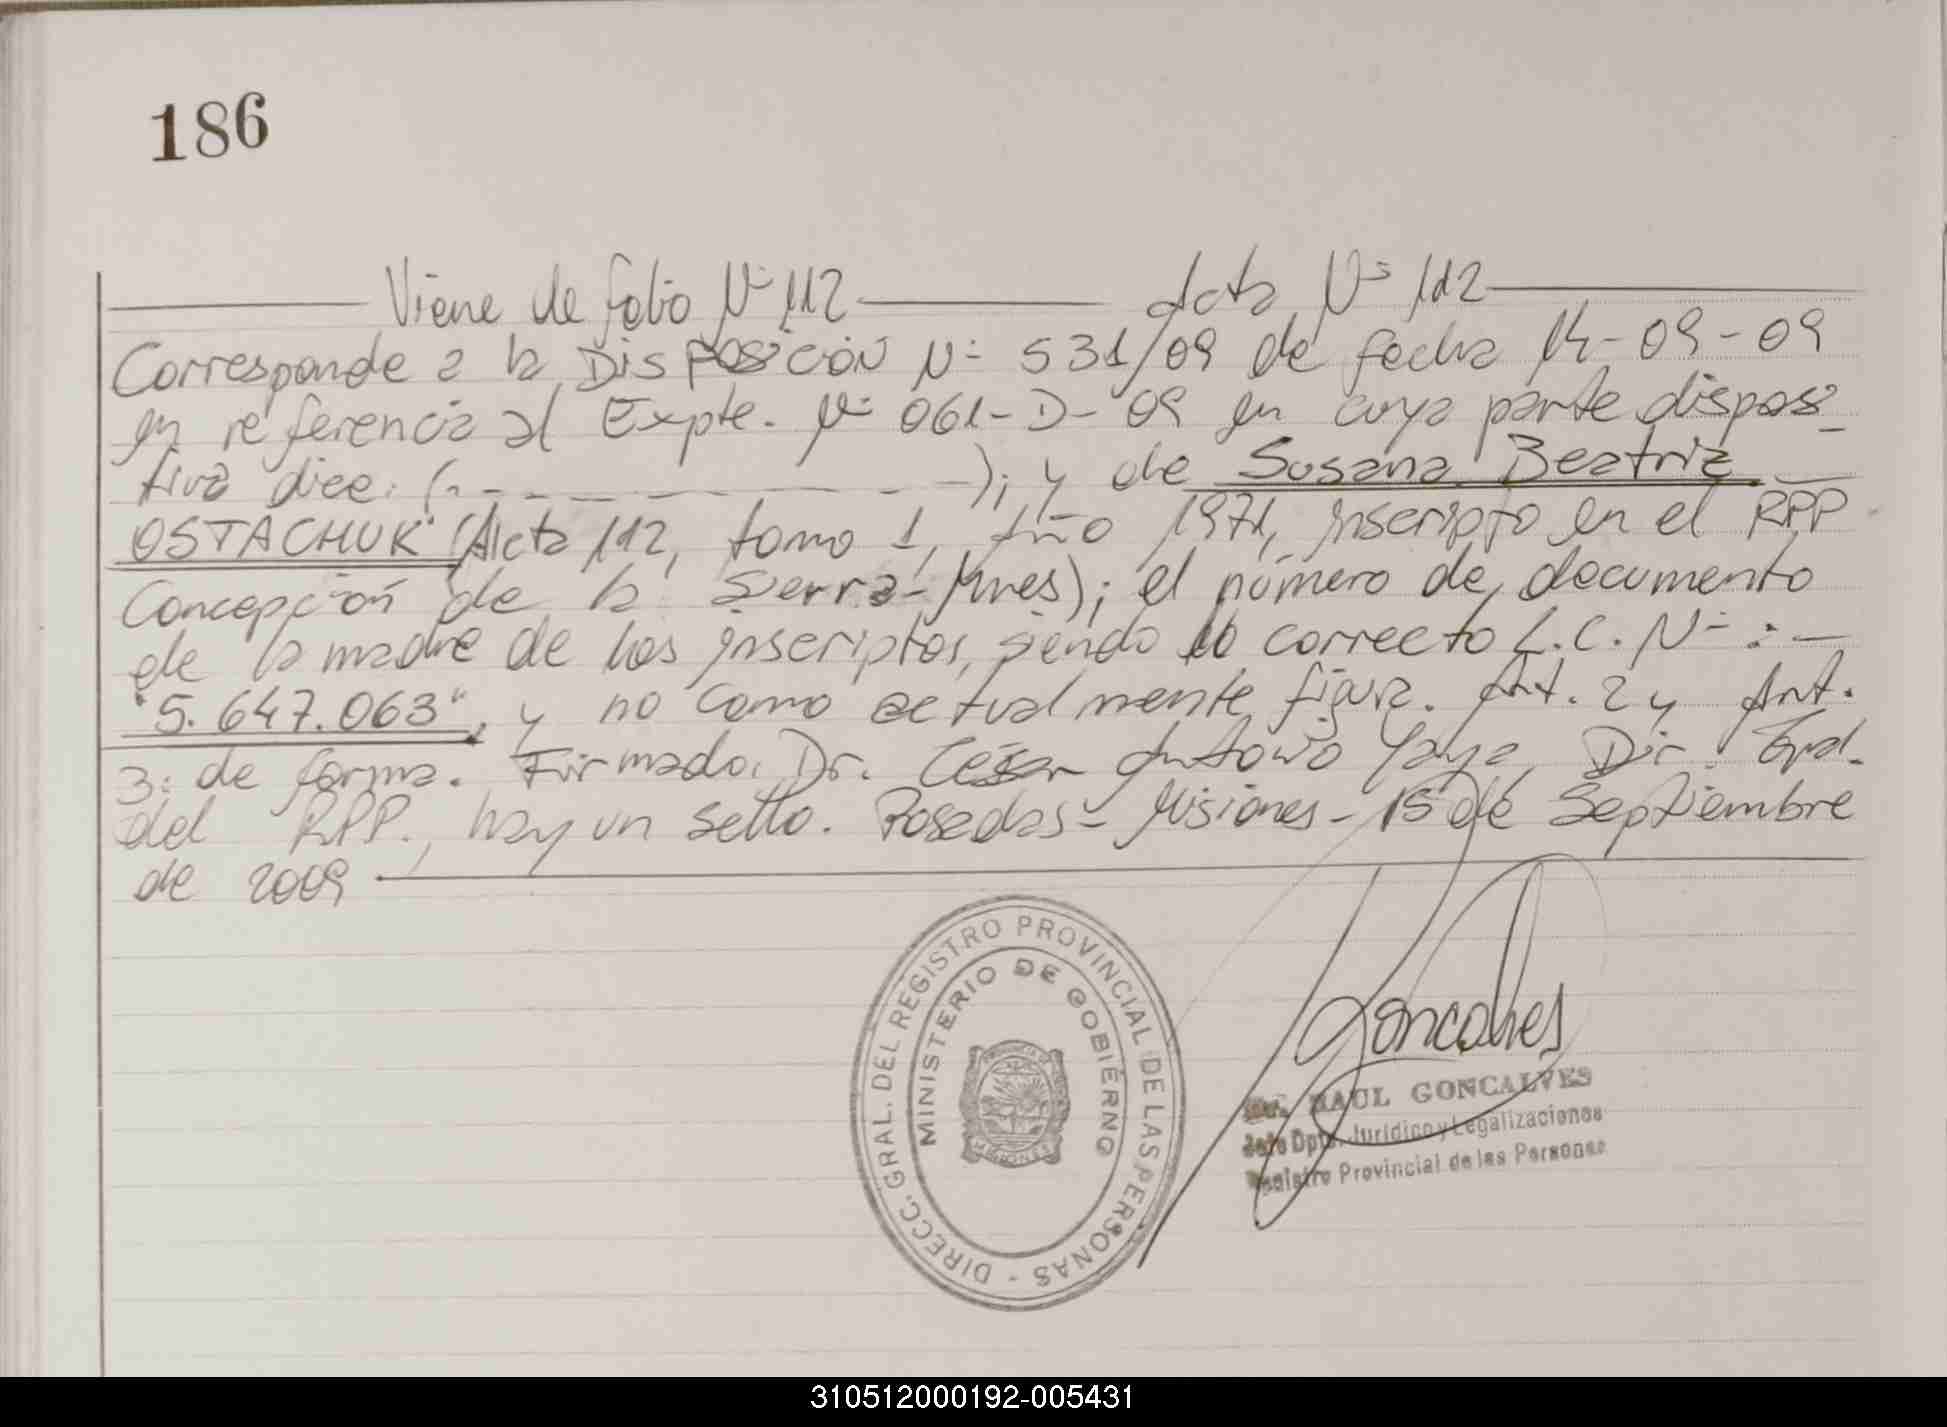 186
Viene de folio Nº 112 Acta Nº 112
Corresponde a la Disposición Nº 531/09 de fecha 14-09-09
en referencia al Expte. Nº 061-D-09 en cuya parte disposi_
tiva dice: (- - - - - - - - - -); y de Susana Beatriz
OSTACHUK" (Acta 112, tomo 1, Año 1971, inscripto en el RPP
Concepción de la Sierra-Mnes); el número de documento
de la madre de los inscriptos, siendo lo correcto L.C. Nº : —
"5.647.063", y no como actualmente figura. Art. 2 y Art.
3: de forma. Firmado. Dr. César Antonio Yaya, Dir. Gral.
del RPP., hay un sello. Posadas - Misiones - 15 de Septiembre
de 2009
DIRECC. GRAL. DEL REGISTRO PROVINCIAL DE LAS PERSONAS -
MINISTERIO DE GOBIERNO
PROVINCIA DE
MISIONES
Goncalves
RAUL GONCALVES
Jefe Dpto. Jurídico y Legalizaciones
Registro Provincial de las Personas
310512000192-005431